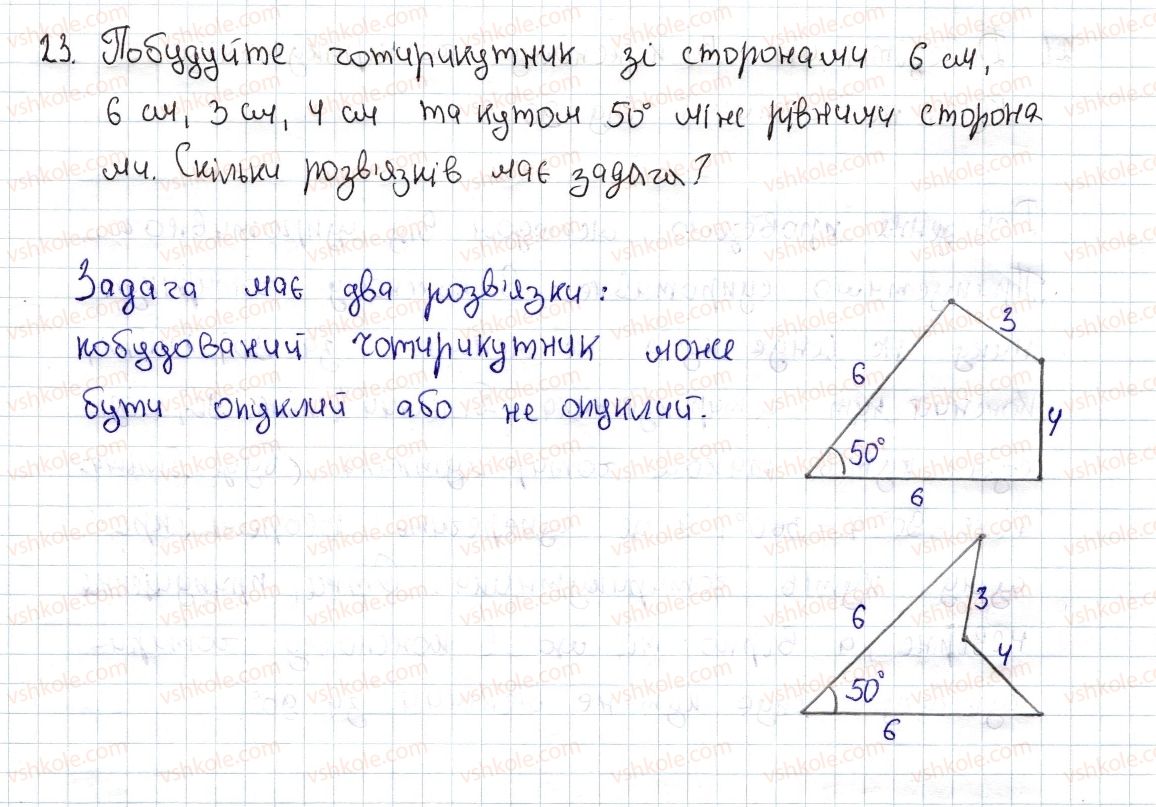 23. Побудуйте чотирикутник зі сторонами 6 см,
6 см, 3 см, 4 см та кутом 50° між рівними сторона
ми. Скільки розв'язків має задача?
Задача має два розв'язки:
побудований чотирикутник може
бути опуклий або не опуклий.
3
6
4
50°
6
3
6
4
50°
6